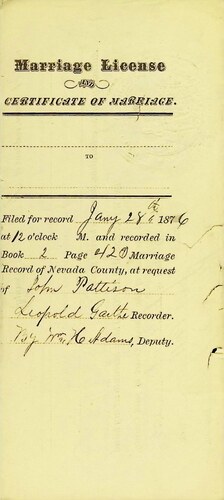 Marriage License
AND
CERTIFICATE OF MARRIAGE.
TO
Filed for record Jany 28th 1876
at 12 o'clock M. and recorded in
Book 2 Page 420 Marriage
Record of Nevada County, at request
of John Pattison
Leopold Garthe Recorder.
By Wm H Adams, Deputy.